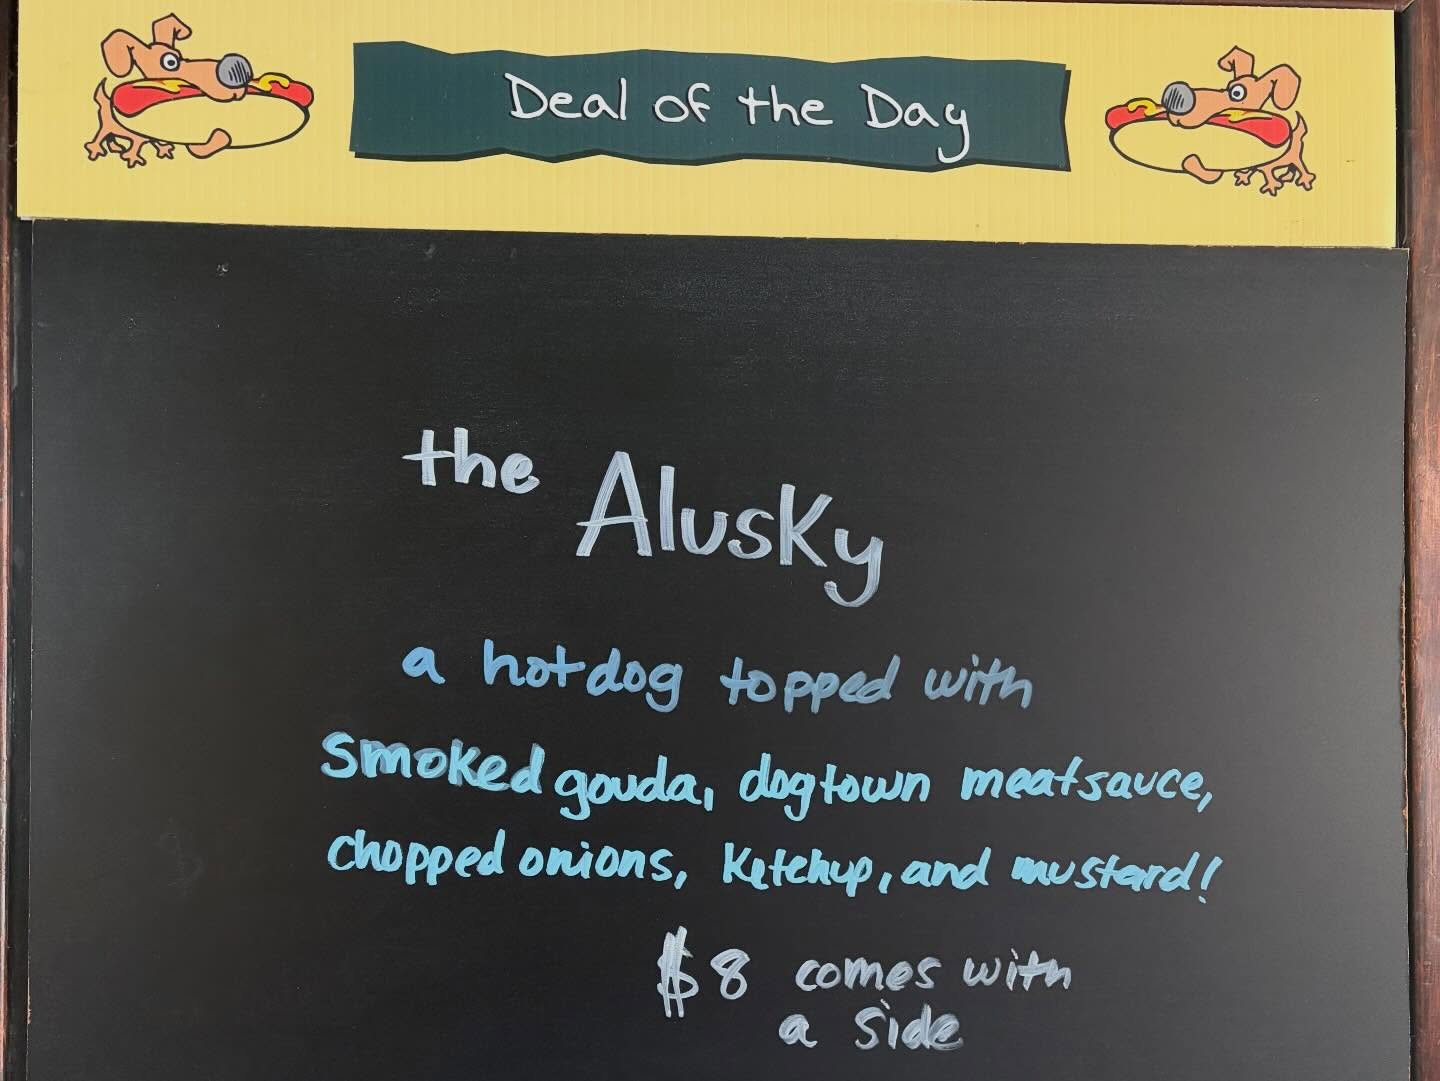 Deal of the Day
the Alusky
a hotdog topped with
smoked gouda, dogtown meatsauce,
chopped onions, Ketchup, and mustard!
$8 comes with
a side